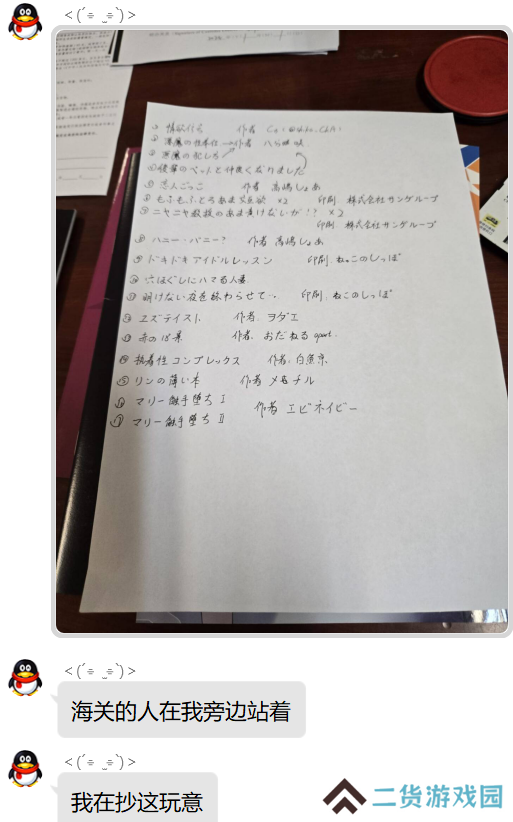 <(´÷ ̫÷`)>
① 情欲信号 作者
② 悪魔の性事住 作者 八
③ 悪魔の犯し方
④ 後輩のペットと仲良くなりました
⑤ 恋人ごっこ 作者 高嶋しょあ
⑥ もふもふとろあま ×2 印刷 株式会社サングループ
⑦ ニヤニヤ教授のあま負けないが!? ×2
印刷 株式会社サングループ
⑧ ハニー・バニー? 作者 高嶋しょあ
⑨ ドキドキアイドルレッスン 印刷 ねこのしっぽ
⑩ 穴ほぐしにハマる人妻
⑪ 明けない夜を終わらせて・・ 印刷 ねこのしっぽ
⑫ ヱズテイスト 作者 ヲダエ
⑬ 赤の 果 作者 おだねる apart.
⑭ 執着性コンプレックス 作者 白原京
⑮ リンの薄い本 作者 メモチル
⑯ マリー触手堕ち Ⅰ
作者 エビネイビー
⑰ マリー触手堕ち Ⅱ
<(´÷ ̫÷`)>
海关的人在我旁边站着
<(´÷ ̫÷`)>
我在抄这玩意
二货游戏园